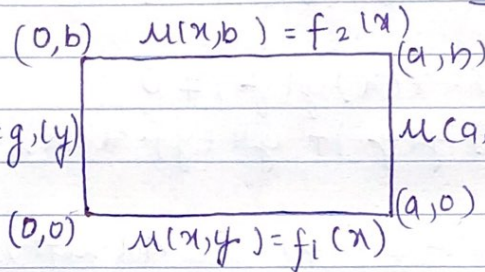 (0,b) u(x,b) = f₂(x)
(a,b)
= g₁(y)
u(a,
(0,0)
(a,0)
u(x,y) = f₁(x)